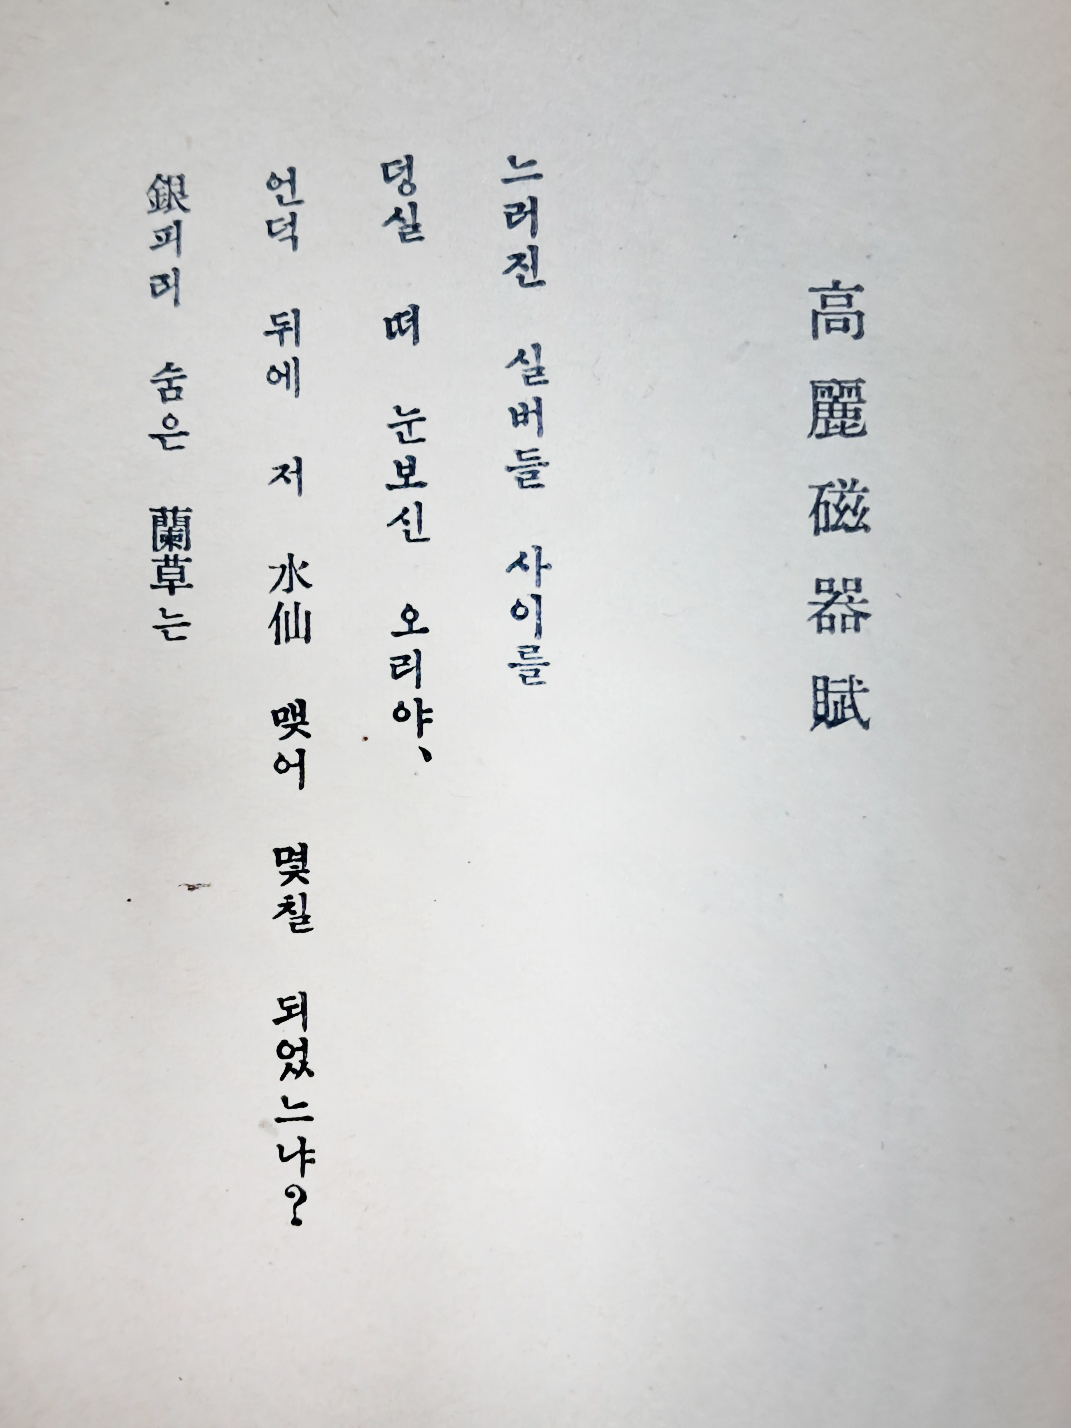 高麗磁器賦
느러진 실버들 사이를
덩실 떠 눈보신 오리야、
언덕 뒤에 저 水仙 맺어 몇칠 되었느냐?
銀피리 숨은 蘭草는